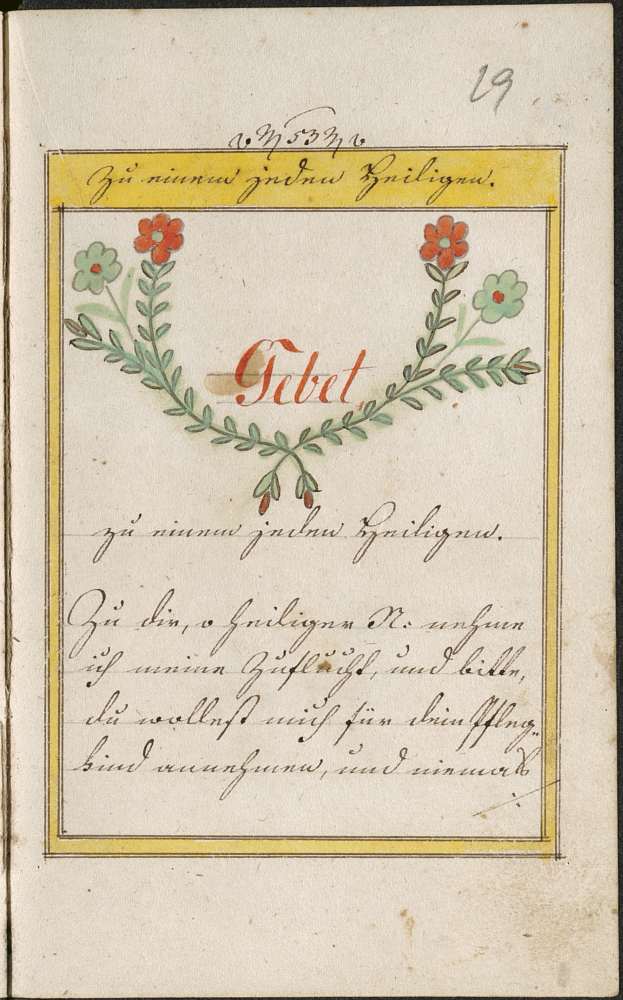 19
53
Zu einem jeden Heiligen.
Gebet
zu einem jeden Heiligen.
Zu dir, o heiliger N: nehme
ich meine Zuflucht, und bitte,
du wollest mich für dein Pfleg„
kind annehmen, und niemals